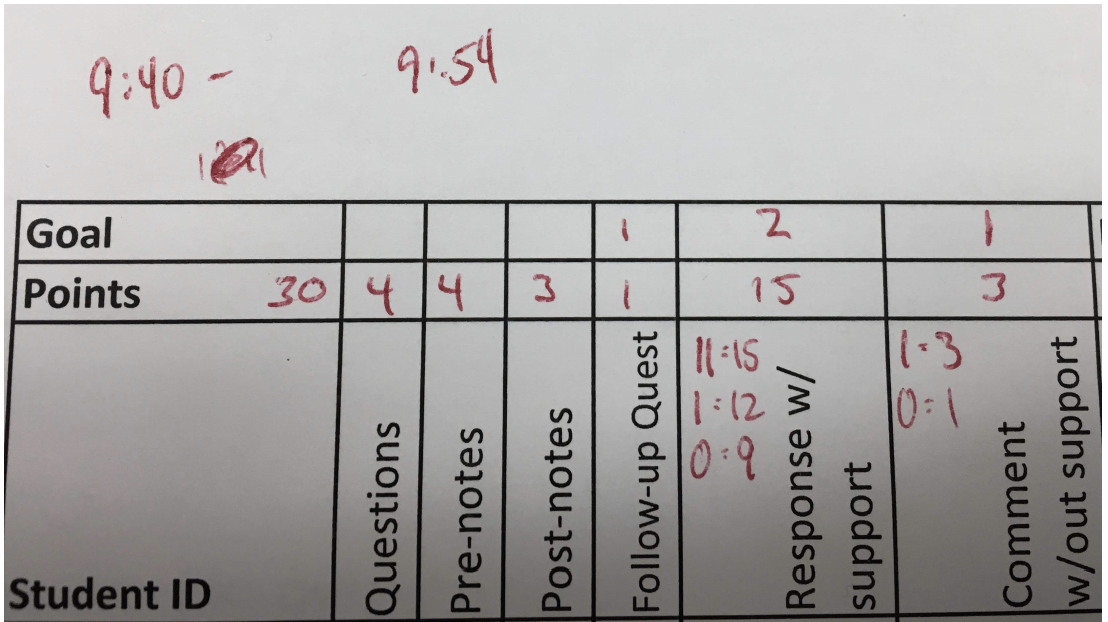 9:40 - 9:54
Goal 1 2 1
Points 30 4 4 3 1 15 3
Student ID
Questions
Pre-notes
Post-notes
Follow-up Quest
11=15
1=12
0=9
Response w/
support
1=3
0=1
Comment
w/out support